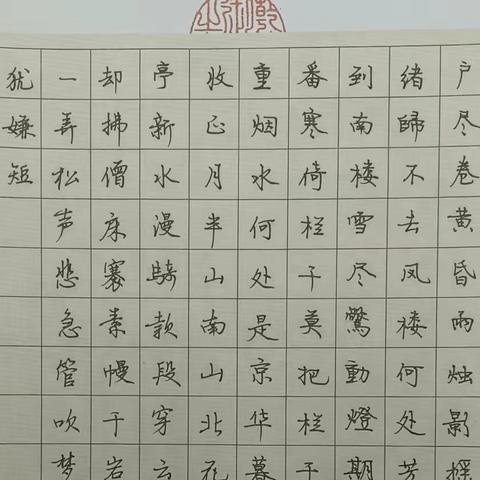 户尽卷黄昏雨烛影摇
绪歸不去凤楼何处芳
到南楼雪尽驚動燈期
番寒倚栏干莫把栏干
重烟水何处是京华暮
收正月半山南山北花
亭新水漫骑款段穿云
却拂僧床褰素幔千岩
一弄松声悲急管吹梦
犹嫌短